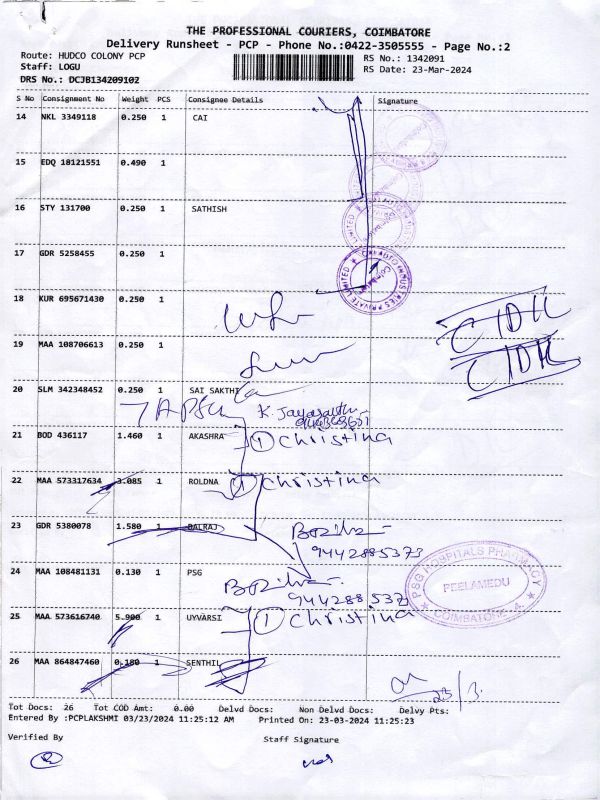 THE PROFESSIONAL COURIERS, COIMBATORE
Delivery Runsheet - PCP - Phone No.:0422-3505555 - Page No.:2
Route: HUDCO COLONY PCP RS No.: 1342091
Staff: LOGU RS Date: 23-Mar-2024
DRS No.: DCJB134209102
S No Consignment No Weight PCS Consignee Details Signature
14 NKL 3349118 0.250 1 CAI
15 EDQ 18121551 0.490 1
16 STY 131700 0.250 1 SATHISH
17 GDR 5258455 0.250 1
18 KUR 695671430 0.250 1
19 MAA 108706613 0.250 1
20 SLM 342348452 0.250 1 SAI SAKTHI
21 BOD 436117 1.460 1 AKASHRA 1 Christina
22 MAA 573317634 3.085 1 ROLDNA 1 Christina
23 GDR 5380078 1.580 1 BALRAJ
9442885373
24 MAA 108481131 0.130 1 PSG
PSG HOSPITALS PHARMACY
PEELAMEDU
COIMBATORE
25 MAA 573616740 5.900 1 UYVARSI 1 Christina
26 MAA 864847460 0.180 1 SENTHIL
23/3
Tot Docs: 26 Tot COD Amt: 0.00 Delvd Docs: Non Delvd Docs: Delvy Pts:
Entered By :PCPLAKSHMI 03/23/2024 11:25:12 AM Printed On: 23-03-2024 11:25:23
Verified By Staff Signature